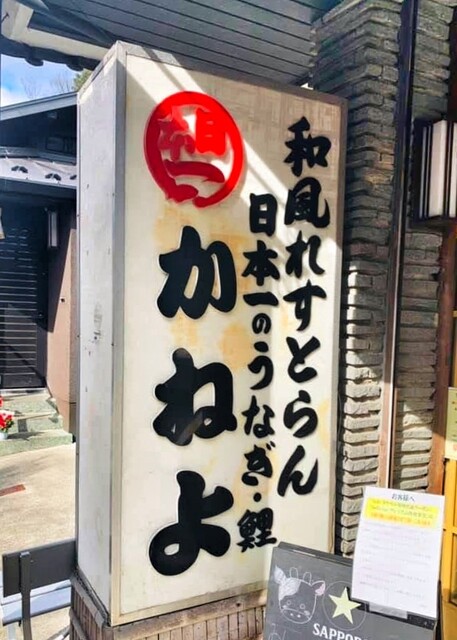 和風れすとらん
日本一のうなぎ・鯉
日本一
かねよ
お客様へ
SAPPO